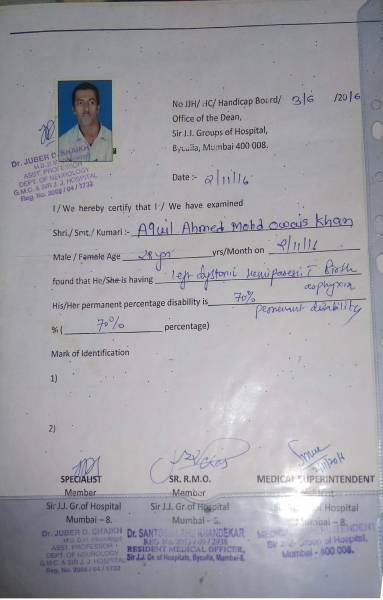 No JJH/ HC/ Handicap Board/ 3/6 /2016
Office of the Dean,
Sir J.J. Groups of Hospital,
Byculla, Mumbai 400 008.
Dr. JUBER D. SHAIKH
ASST. PROFESSOR
DEPT. OF NEUROLOGY
G.M.C. & SIR J. J. HOSPITAL
Reg. No. 2003 / 04 / 1732
Date :- 2/11/16
I / We hereby certify that I / We have examined
Shri./ Smt./ Kumari :- Aquil Ahmed Mohd Owais Khan
Male / Female Age 28 yr yrs/Month on 2/11/16
found that He/She is having Left dystonic hemiparesis Birth
asphyxia
His/Her permanent percentage disability is 70%
permanent disability
% ( 70% percentage)
Mark of Identification
1)
2)
SPECIALIST SR. R.M.O. MEDICAL SUPERINTENDENT
Member Member
Sir J.J. Gr.of Hospital Sir J.J. Gr. of Hospital of Hospital
Mumbai – 8. Mumbai – 8.
Dr. JUBER D. SHAIKH
ASST. PROFESSOR
DEPT. OF NEUROLOGY
G.M.C & SIR J. J. HOSPITAL
Reg. No. 2003 / 04 / 1732
KHANDEKAR
RESIDENT MEDICAL OFFICER,
Sir J.J. Gr. of Hospitals, Byculla, Mumbai-8.
Group of Hospital,
Mumbai - 400 008.